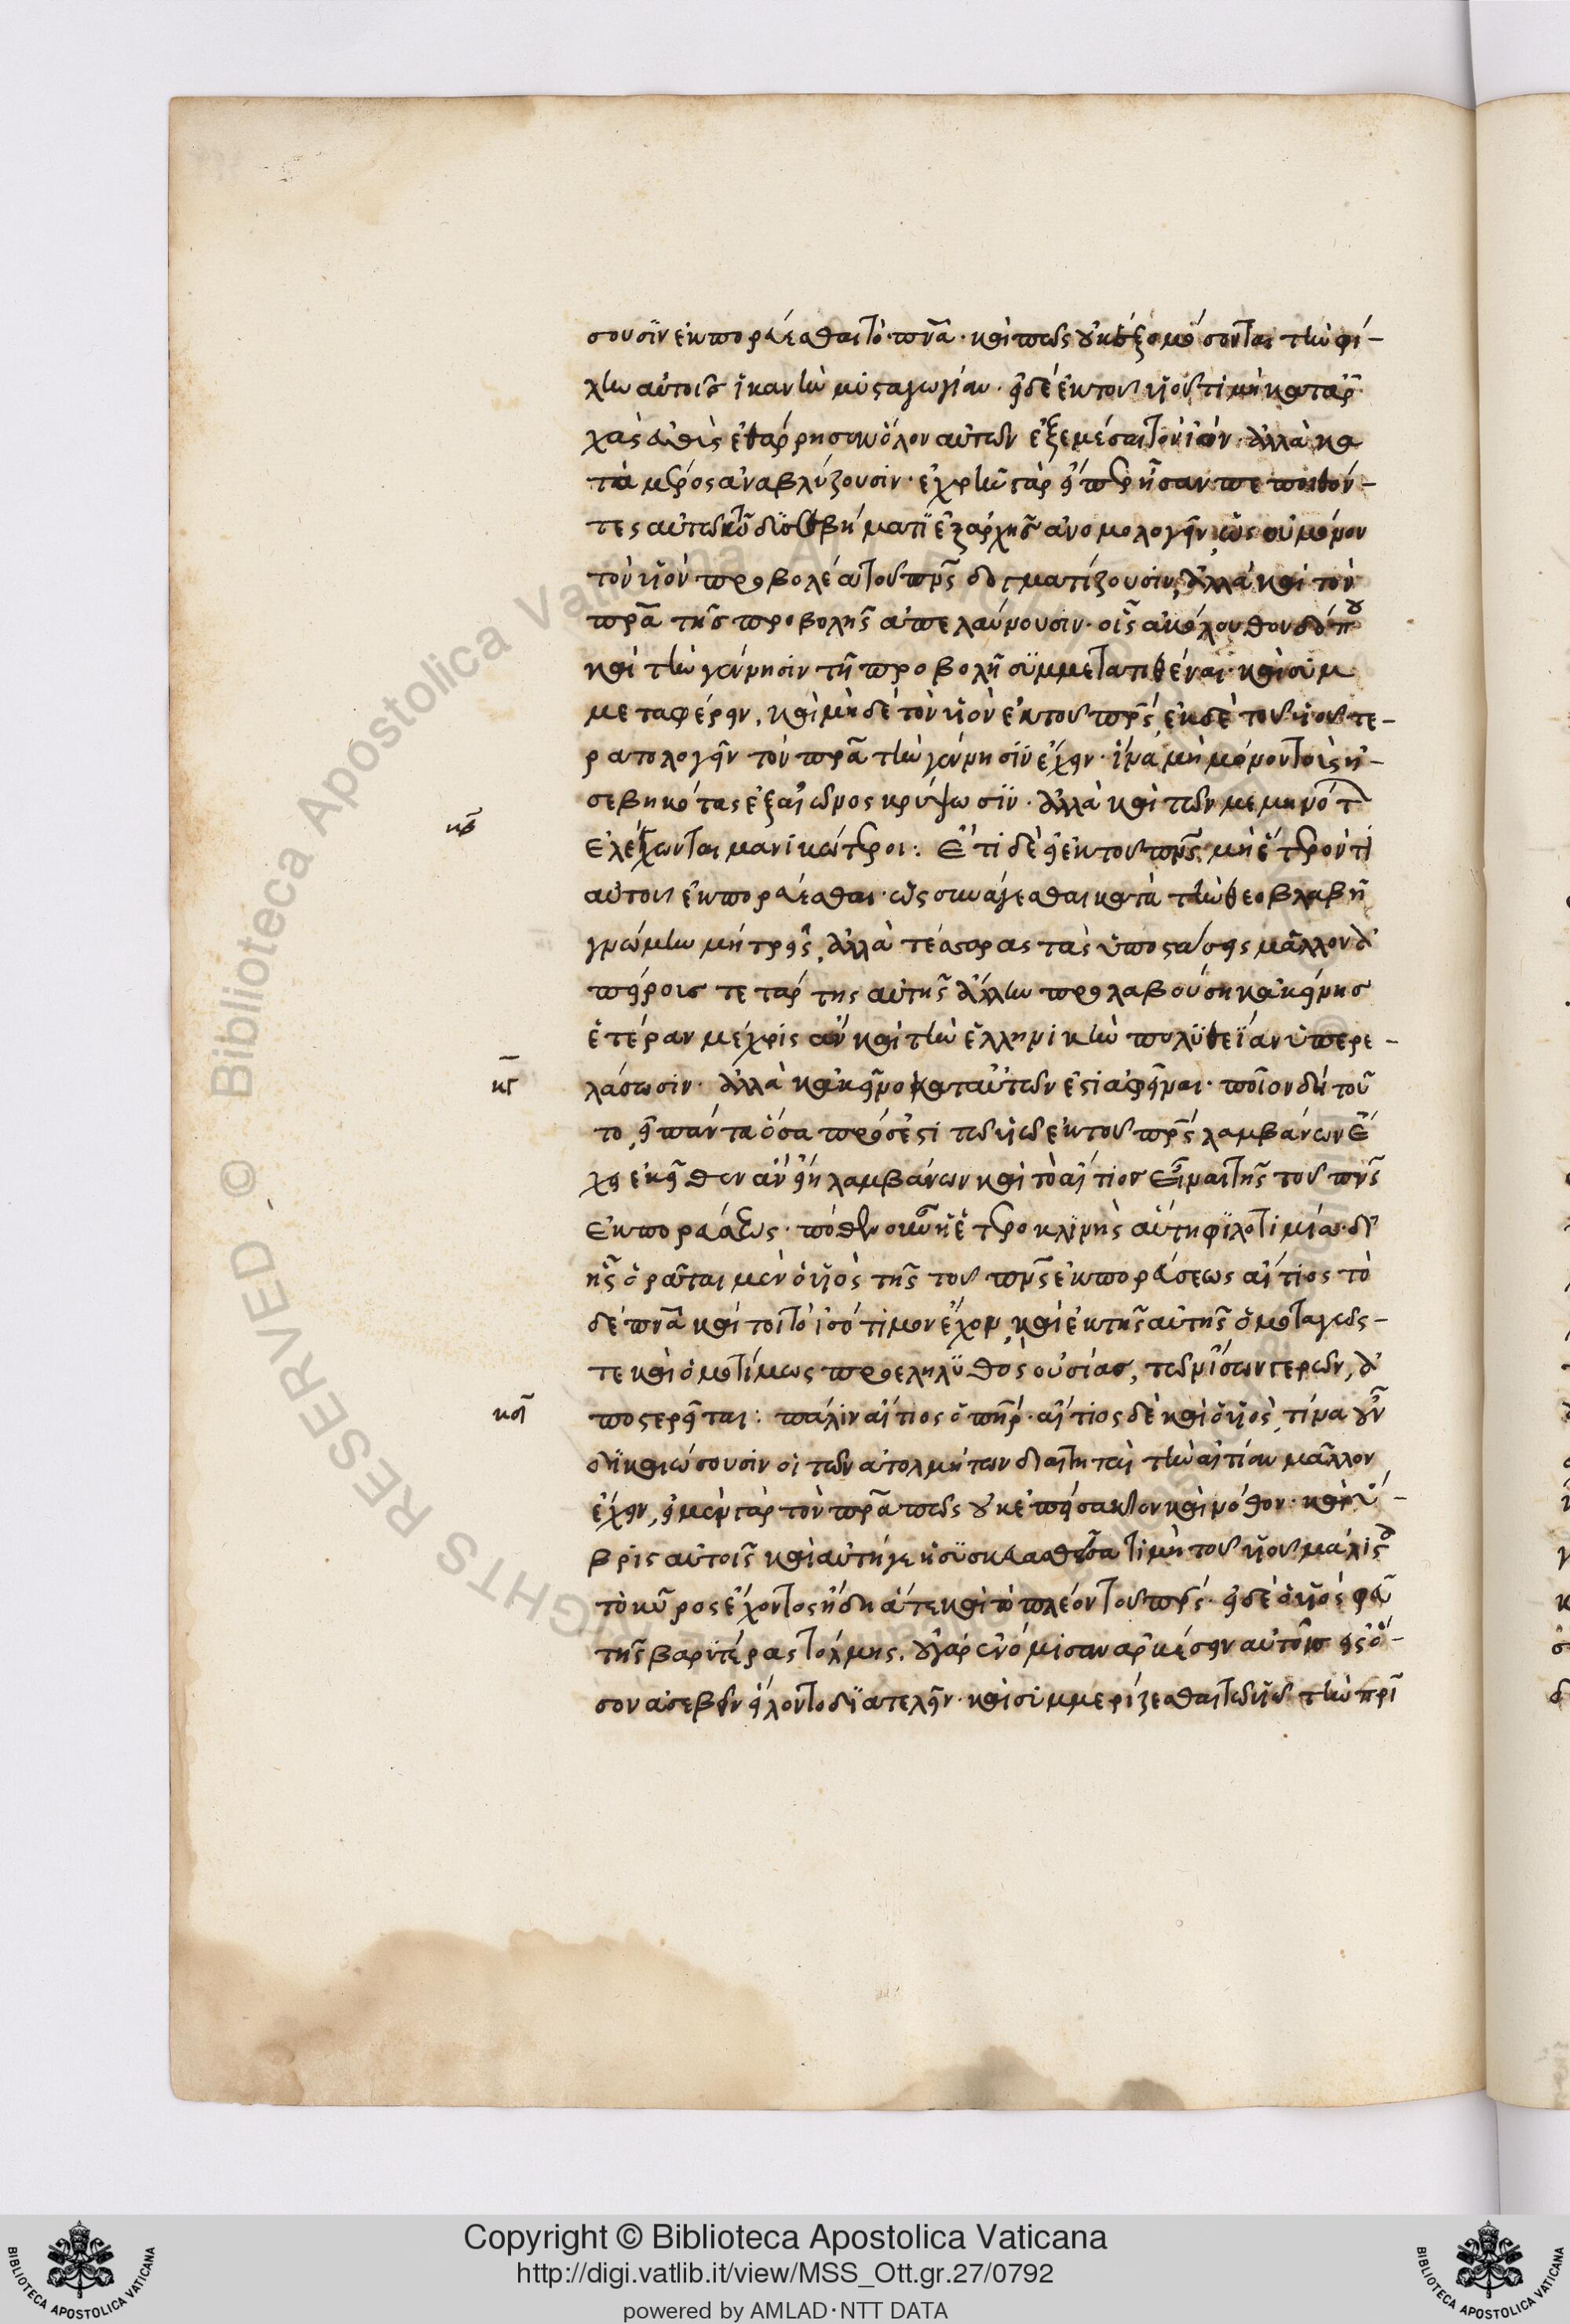 σουσϊν ἐκπορεύεσθαι τὸ πνᾶ · καὶ πῶς οὐκ ἐξομόσονται τὴν φί-
λην αὐτοῖς ἱκανὴν μυσταγωγίαν · εἰ δὲ ἐκ τοῦ υἱοῦ τί μὴ κατ' ἀρ
χὰς εὐθὺς ἐθάρρησαν ὅλον αὐτῶν ἐξεμέσαι τὸν ἰόν · ἀλλὰ κα
τὰ μέρος ἀναβλύζουσιν · ἐχρῆν γὰρ εἴπερ ἦσαν πεποιθό-
τες αὐτῶν τῷ δυσσεβήματι ἐξ ἀρχῆς ἀνομολογεῖν, ὡς οὐ μόνον
τὸν υἱὸν προβολέα τοῦ πνς δογματίζουσιν, ἀλλὰ καὶ τὸν
πρᾶ τῆς προβολῆς ἀπελαύνουσιν · οἷς ἀκόλουθον δήπου
καὶ τὴν γέννησιν τῇ προβολῇ συμμετατιθέναι · καὶ συμ
μεταφέρειν, καὶ μηδὲ τὸν υἱὸν ἐκ τοῦ πρς, ἐκ δὲ τοῦ υἱοῦ τε-
ρατολογεῖν τὸν πρᾶ τὴν γέννησϊν ἔχειν · ἵνα μὴ μόνον τοὺς ἠ-
σεβηκότας ἐξ αἰῶνος κρύψωσϊν · ἀλλὰ καὶ τῶν μεμηνότ
κβ ἐλέγχωνται μανικώτεροι : Ἔτι δὲ εἰ ἐκ τοῦ πνς μὴ ἕτερόν τι
αὐτοῦ ἐκπορεύεσθαι · ὡς συνάγεσθαι κατὰ τὴν θεοβλαβῆ
γνώμην μὴ τρεῖς, ἀλλὰ τέσσαρας τὰς ὑποστάσεις μᾶλλον δ
ἀπείρους τε τάρτης αὐτῆς ἄλλην προλαβούση κἀκείνης
ἑτέραν μέχρις ἂν καὶ τὴν ἑλληνικὴν πολυθεΐαν ὑπερε-
κγ λάσωσιν · ἀλλὰ κἀκεῖνο κατ' αὐτῶν ἐστι ἀφεῖναι · ποῖον δὴ τοῦ
το, εἰ πάντα ὅσα πρόσεστι τῷ υἱῷ ἐκ τοῦ πρς λαμβάνων ἔ
χει ἐκεῖθεν ἂν εἴη λαμβάνων καὶ τὸ αἴτιος εἶναι τῆς τοῦ πνς
ἐκπορεύσεως · πόθεν οὖν ἡ ἑτεροκλινὴς αὕτη φιλοτιμία · δι'
ἧς ὁρᾶται μὲν ὁ υἱὸς τῆς τοῦ πνς ἐκπορεύσεως αἴτιος τὸ
δὲ πνᾶ καὶ τοι τὸ ἰσότιμον ἔχον, καὶ ἐκ τῆς αὐτῆς ὁμοταγῶς-
τε καὶ ὁμοτίμως προεληλυθὸς οὐσίας, τῶν ἴσων γερῶν, ἀ
κδ ποστερεῖται : πάλιν αἴτιος ὁ πηρ · αἴτιος δὲ καὶ ὁ υἱὸς, τίνα οὖν
δικαιώσουσιν οἱ τῶν ἀτολμήτων διαιτηταὶ τὴν αἰτίαν μᾶλλον
ἔχειν, εἰ μὲν γὰρ τὸν πρᾶ πῶς οὐκ ἐπείσακτον καὶ νόθον · καὶ ὕ-
βρις αὐτοῖς καὶ αὐτή γε ἡ συσκευασθεῖσα τιμὴ τοῦ υἱοῦ μάλιστα
τὸ κῦρος ἔχοντος ἤδη ἅτε καὶ τὸ πλέον τοῦ πρς · εἰ δὲ ὁ υἱός φεῦ
τῆς βαρυτέρας τόλμης. οὐ γὰρ ἐνόμισαν ἀρκέσειν αὐτοῖς εἰς ὅ-
σον ἀσεβεῖν εἵλοντο διατελεῖν · καὶ συμμερίζεσθαι τῷ υἱῷ τὴν πρι
Copyright © Biblioteca Apostolica Vaticana
http://digi.vatlib.it/view/MSS_Ott.gr.27/0792
powered by AMLAD·NTT DATA
BIBLIOTECA APOSTOLICA VATICANA
BIBLIOTECA APOSTOLICA VATICANA